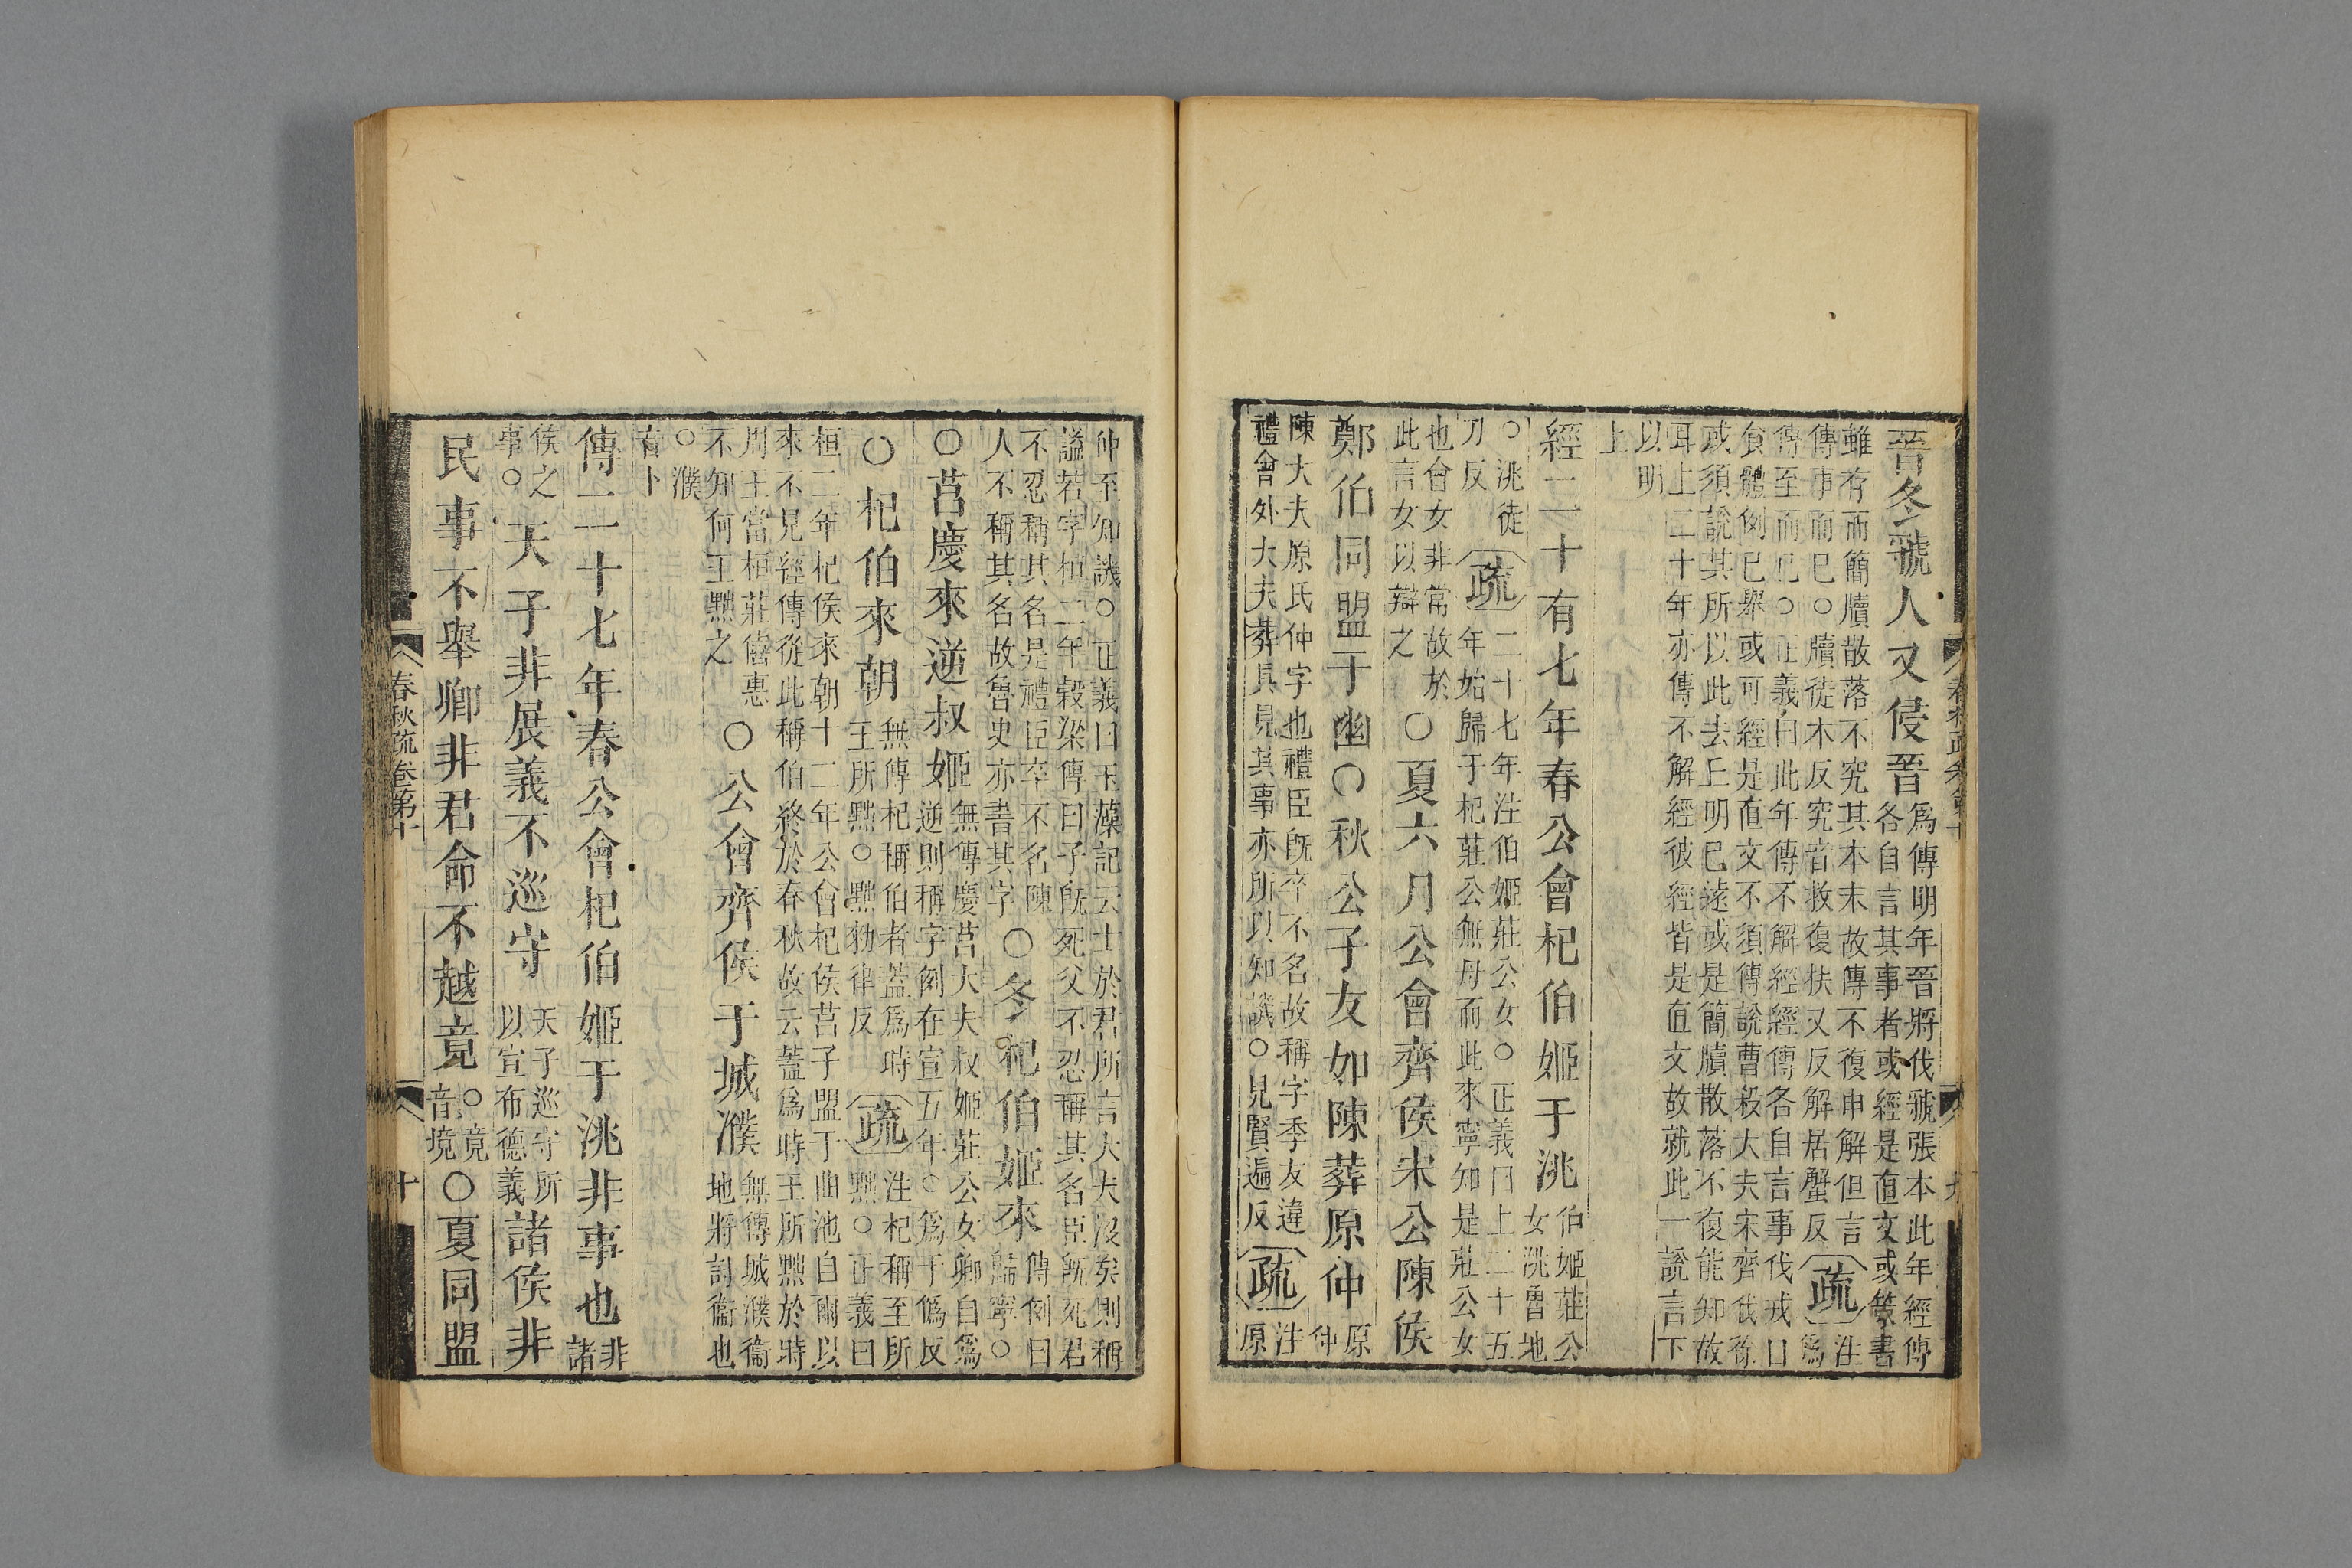 晉冬虢人又侵晉爲傳明年晉將伐虢張本此年經傳
各自言其事者或經是直文或策書
雖存而簡牘散落不究其本末故傳不復申解但言
傳事而已○牘徒木反究音救復扶又反解居蟹反疏注爲
傳至而已○正義曰此年傳不解經經傳各自言事伐戎日
食體例已舉或可經是直文不須傳說曹殺大夫宋齊伐徐
或須說其所以此去丘明已遠或是簡牘散落不復能知故
耳上二十年亦傳不解經彼經皆是直文故就此一說言下
以明
上
經二十有七年春公會杞伯姬于洮伯姬莊公
女洮魯地
○洮徒
刀反疏二十七年注伯姬莊公女○正義曰上二十五
年始歸于杞莊公無母而此來寧知是莊公女
也會女非常故於
此言女以辯之○夏六月公會齊侯宋公陳侯
鄭伯同盟于幽○秋公子友如陳葬原仲原
仲
陳大夫原氏仲字也禮臣旣卒不名故稱字季友違
禮會外大夫葬具見其事亦所以知譏○見賢遍反疏注
原
仲至知譏○正義曰玉藻記云士於君所言大夫沒矣則稱
謚若字桓二年穀梁傳曰子旣死父不忍稱其名臣旣死君
不忍稱其名是禮臣卒不名陳
人不稱其名故魯史亦書其字○冬杞伯姬來傳例曰
歸寧○
○莒慶來逆叔姬無傳慶莒大夫叔姬莊公女卿自爲
逆則稱字例在宣五年○爲于僞反
○杞伯來朝無傳杞稱伯者蓋爲時
王所黜○黜勑律反疏注杞稱至所
黜○正義曰
桓二年杞侯來朝十二年公會杞侯莒子盟于曲池自爾以
來不見經傳從此稱伯終於春秋故云蓋爲時王所黜於時
周王當桓莊僖惠
不知何王黜之○公會齊侯于城濮無傳城濮衞
地將討衞也
○濮
音卜
傳二十七年春公會杞伯姬于洮非事也非
諸
侯之
事○天子非展義不巡守天子巡守所
以宣布德義諸侯非
民事不舉卿非君命不越竟○竟
音境○夏同盟
春秋疏卷第十
十